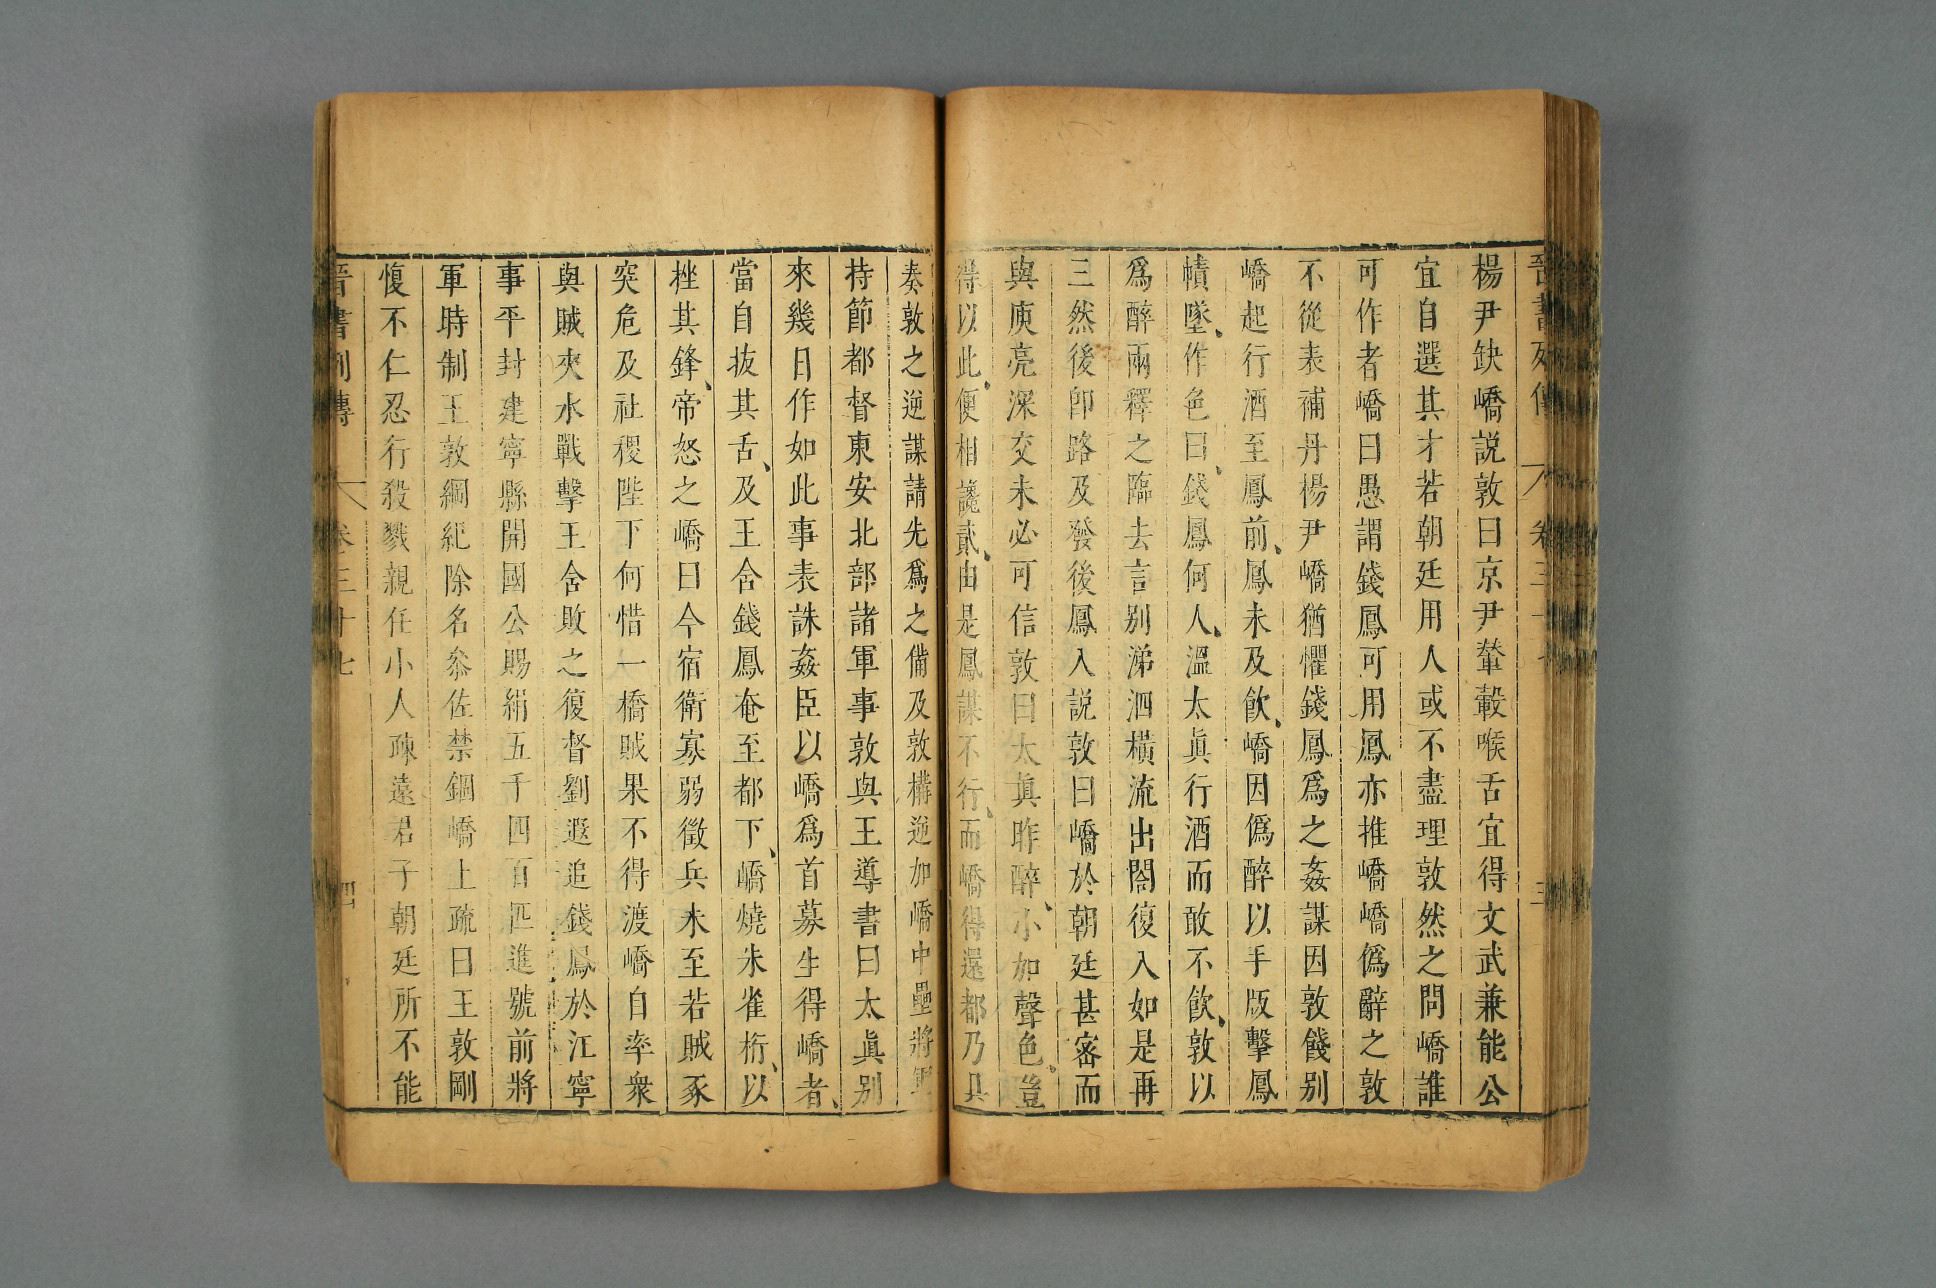 晉書列傳 卷三十七 三
楊尹缺嶠説敦曰京尹輦轂喉舌宜得文武兼能公
宜自選其才若朝廷用人或不盡理敦然之問嶠誰
可作者嶠曰愚謂錢鳳可用鳳亦推嶠嶠僞辭之敦
不從表補丹楊尹嶠猶懼錢鳳爲之姦謀因敦餞别
嶠起行酒至鳳前、鳳未及飲、嶠因僞醉以手版擊鳳
幘墜、作色曰、錢鳳何人、溫太眞行酒而敢不飲、敦以
爲醉兩釋之臨去言别涕泗橫流出閤復入如是再
三然後即路及發後鳳入説敦曰嶠於朝廷甚密而
與庾亮深交未必可信敦曰太眞昨醉、小如聲色、豈
得以此、便相讒貳、由是鳳謀不行、而嶠得還都乃具
奏敦之逆謀請先爲之備及敦構逆加嶠中壘將軍
持節都督東安北部諸軍事敦與王導書曰太眞别
來幾日作如此事表誅姦臣以嶠爲首募生得嶠者、
當自抜其舌、及王含錢鳳奄至都下、嶠燒朱雀桁、以
挫其鋒、帝怒之嶠曰今宿衛寡弱徵兵未至若賊豕
突危及社稷陛下何惜一橋賊果不得渡嶠自率衆
與賊夾水戰擊王含敗之復督劉遐追錢鳳於江寧
事平封建寧縣開國公賜絹五千四百匹進號前將
軍時制王敦綱紀除名叅佐禁錮嶠上疏曰王敦剛
愎不仁忍行殺戮親任小人疎遠君子朝廷所不能
晉書列傳 卷三十七 四